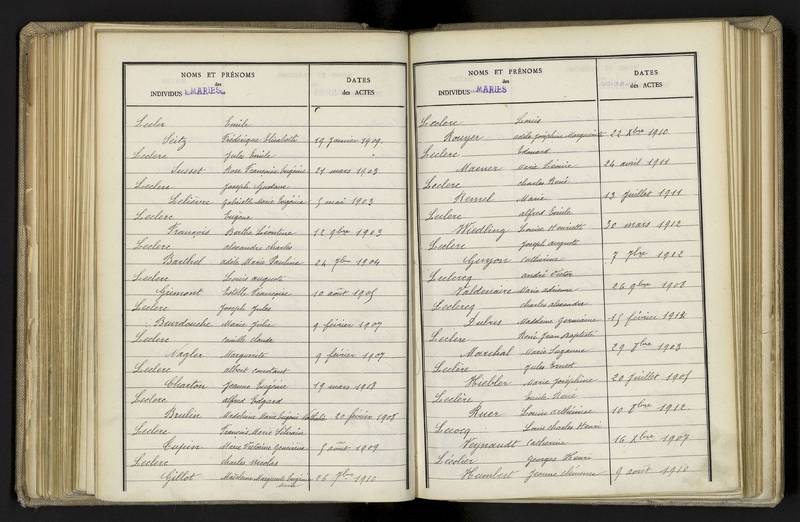 NOMS ET PRÉNOMS
des
INDIVIDUS MARIÉS
DATES
des ACTES
Lecler Emile
Seitz Frédérique Elisabeth 19 Janvier 1909.
Leclerc Jules Emile
Susset Rose Françoise Eugénie 21 mars 1903
Leclerc Joseph Gustave
Lelièvre Gabrielle Marie Eugénie 5 mai 1903
Leclerc Eugène
François Berthe Léontine 12 9bre 1903
Leclerc alexandre charles
Barthel adèle Marie Pauline 24 7bre 1904
Leclerc Louis auguste
Grimont Estelle Françoise 10 août 1905
Leclerc Joseph Jules
Bourdouche Marie Julie 9 février 1907
Leclerc camille claude
Nagler Marguerite 9 février 1907
Leclerc albert constant
Charton Jeanne Eugénie 19 mars 1908
Leclerc alfred Edgard
Brulin Madeleine Marie Eugénie 20 février 1908
Leclerc François Marie
Cupin Marie Victorine 5 août 1909
Leclerc charles Nicolas
Gillot Madeleine Marguerite Eugénie 26 7bre 1910
NOMS ET PRÉNOMS
des
INDIVIDUS MARIÉS
DATES
des ACTES
Leclerc Louis
Rouyer adèle Joséphine Marguerite 22 Xbre 1910
Leclerc Edouard
Maener Marie 24 avril 1911
Leclerc charles René
Remel Marie 13 Juillet 1911
Leclerc alfred Emile
Wiedling Louise Henriette 30 mars 1912
Leclerc Joseph auguste
Guyon Catherine 7 7bre 1912
Leclercq andré Victor
Valdenaire Marie 26 9bre 1908
Leclercq charles alexandre
Dubres Madeleine Germaine 15 février 1912
Leclere René Jean Baptiste
Marchal Marie Suzanne 29 7bre 1903
Leclère Jules Ernest
Hiebler Marie Joséphine 20 Juillet 1905
Leclère Emile René
Ruer Louise 10 8bre 1912
Lecocq Louis charles Henri
Veynandt Catherine 16 Xbre 1907
Lécolier Georges Henri
Humbert Jeanne 9 août 1910